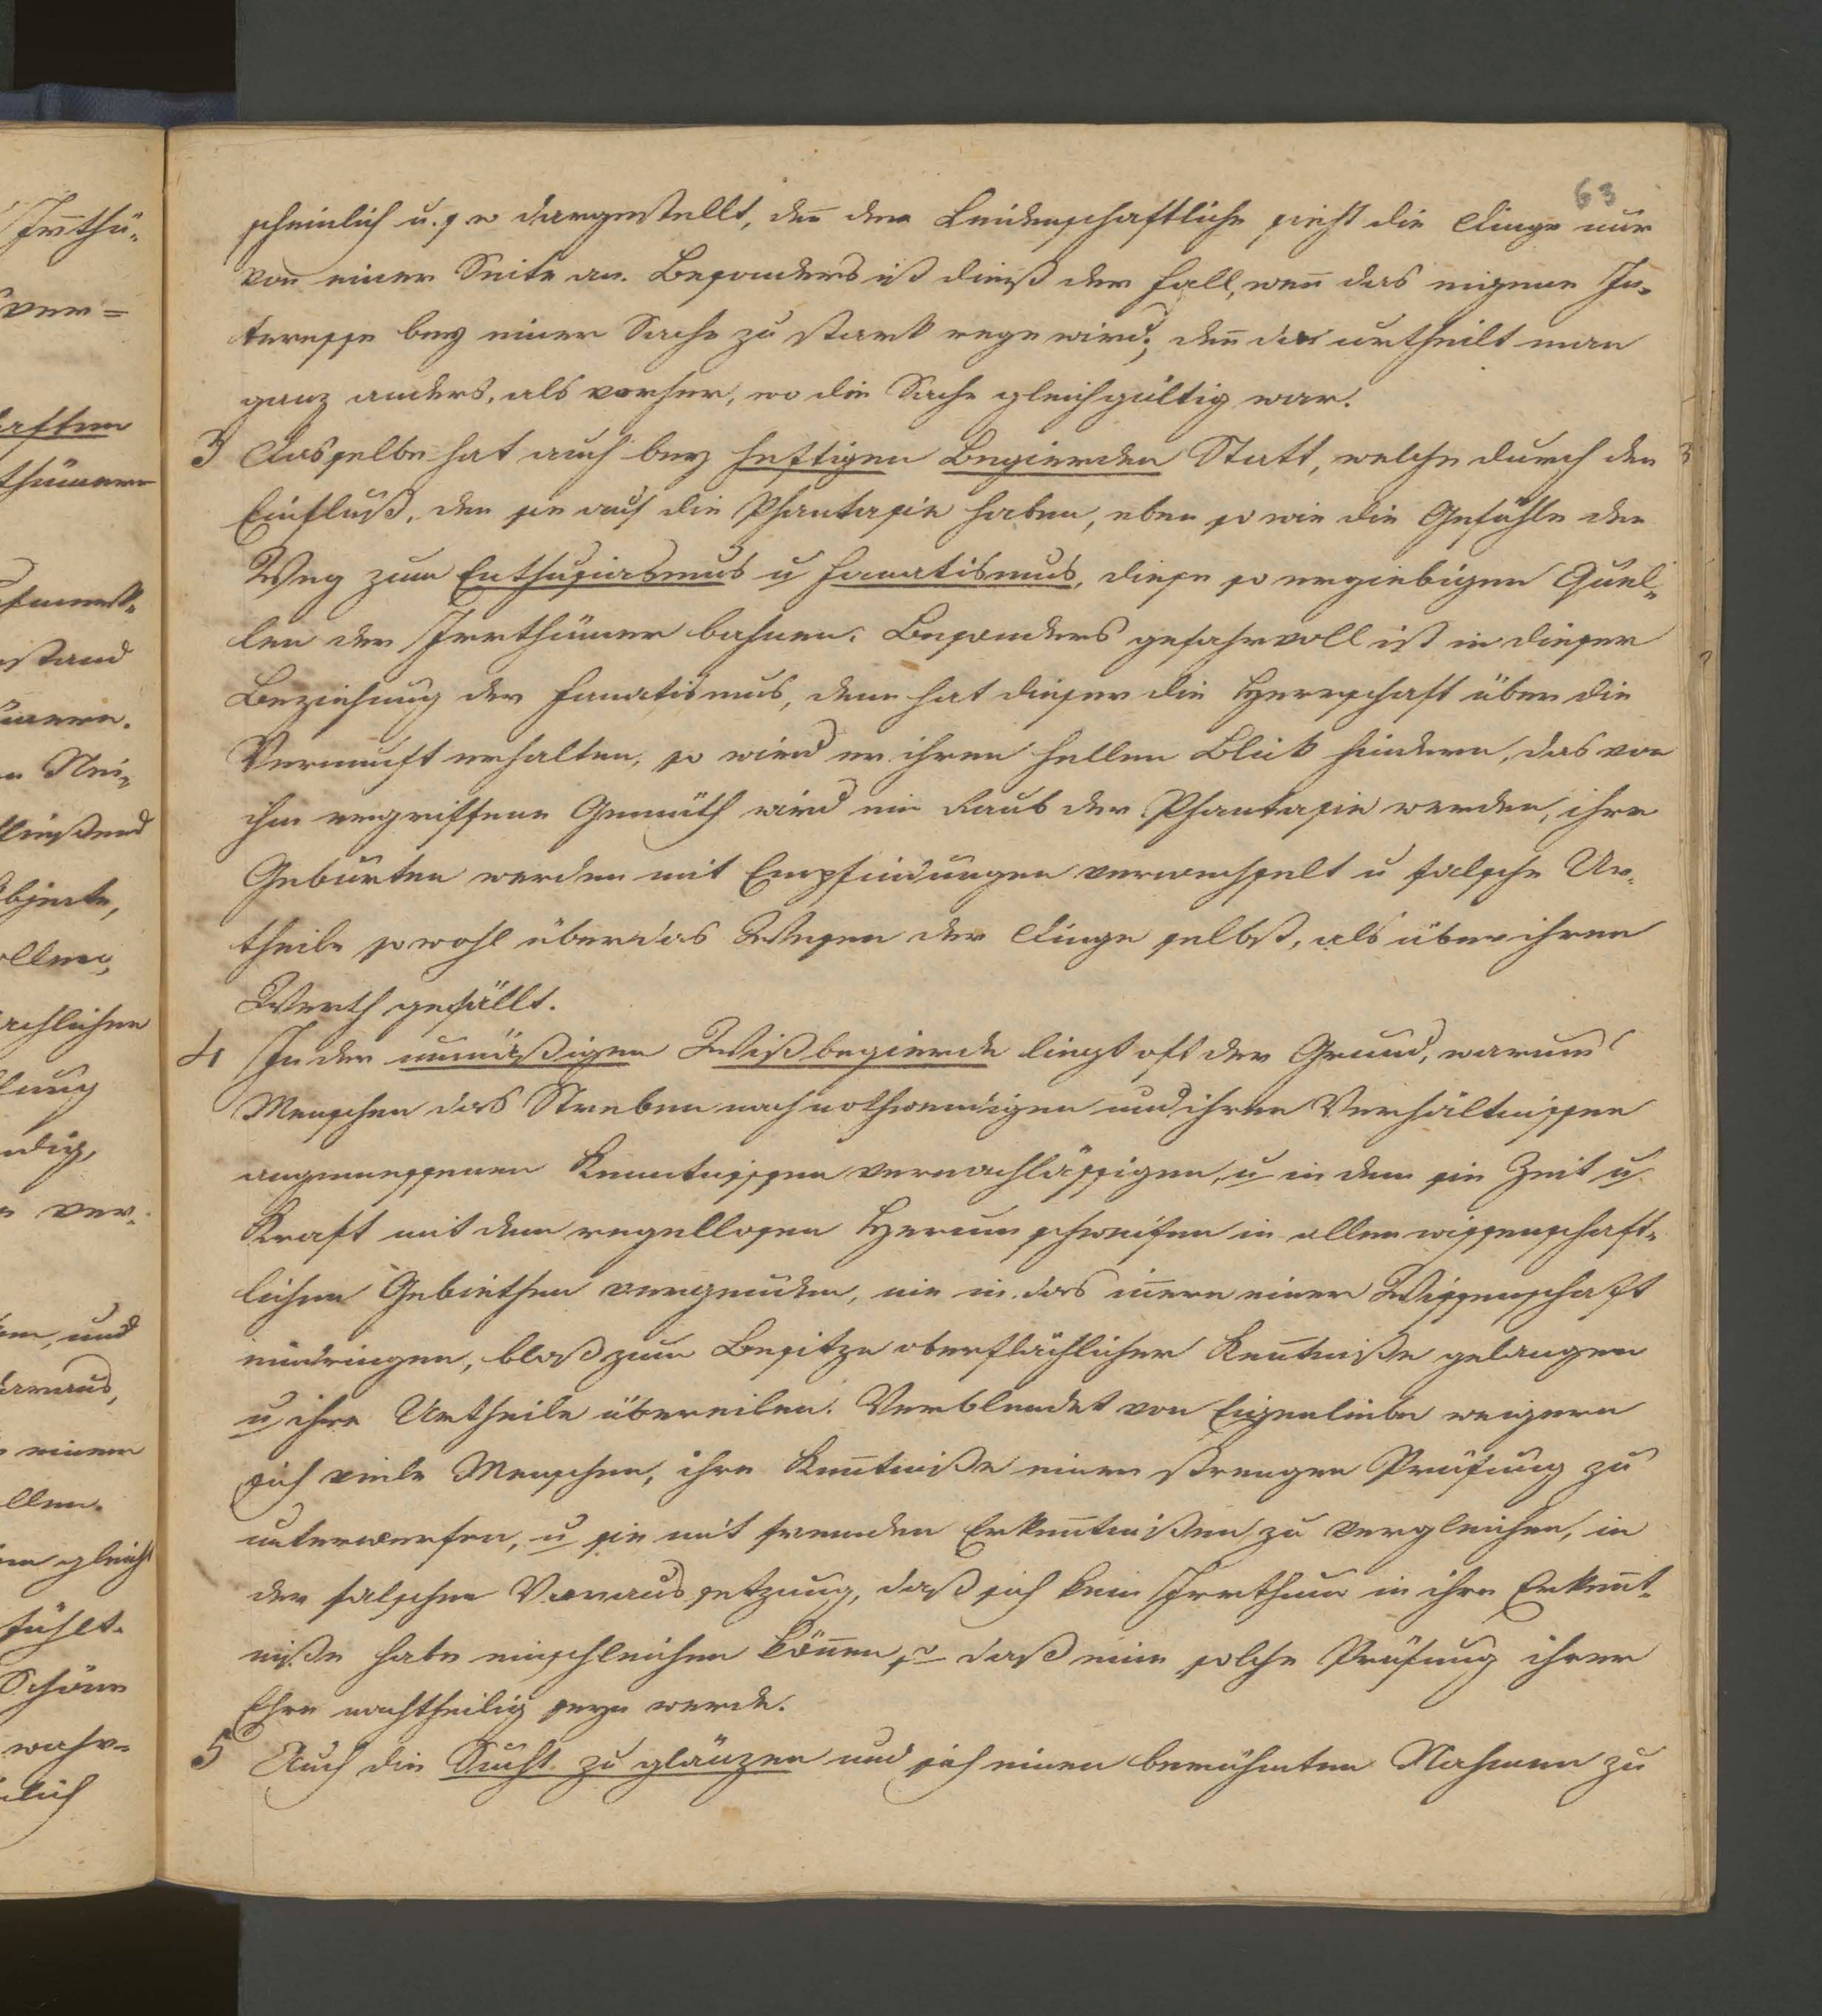 63
scheinlich u. s w dargestellt, den̅ der Leidenschaftliche sieht die Dinge nur
von einer Seite an. Besonders ist dieß der Fall, wen̅ das eigene In-
teresse bey einer Sache zu stark rege wird; den̅ da urtheilt man
ganz anders, als vorher, wo die Sache gleichgültig war.
3 Dasselbe hat auch bey heftigen Begierden Statt, welche durch den
Einfluß, den sie auf die Phantasie haben, eben so wie die Gefühle den
Weg zum Enthusiasmus u Fanatismus, diese so ergiebigen Quel-
len der Irrthümer bahnen. Besonders gefahrvoll ist in dieser
Beziehung der Fanatismus, denn hat dieser die Herrschaft über die
Vernunft erhalten, so wird er ihren hellen Blick hindern, das von
ihm ergriffene Gemüth wird ein Raub der Phantasie werden, ihre
Geburten werden mit Empfindungen verwechselt u falsche Ur-
theile sowohl über das Wesen der Dinge selbst, als über ihren
Werth gefällt.
4 In der unmäßigen Wißbegierde liegt oft der Grund, warum
Menschen das Streben nach nothwendigen und ihren Verhältnissen
angemessenen Kenntnissen vernachlässigen, u in dem sie Zeit u
Kraft mit dem regellosen Herumschweifen in allen wissenschaft-
lichen Gebiethen vergeuden, nie in das in̅ere einer Wissenschaft
eindringen, bloß zum Besitze oberflächlicher Ken̅tniße gelangen
u ihre Urtheile übereilen. Verblendet von Eigenliebe weigern
sich viele Menschen, ihre Ken̅tniße einer strengen Prüfung zu
unterwerfen, u sie mit fremden Erken̅tnißen zu vergleichen, in
der falschen Voraussetzung, daß sich kein Irrthum in ihre Erken̅t-
niße habe einschleichen kön̅en, daß eine solche Prüfung ihrer
Ehre nachtheilig seyn werde.
5 Auch die Sucht zu glänzen und sich einen berühmten Nahmen zu